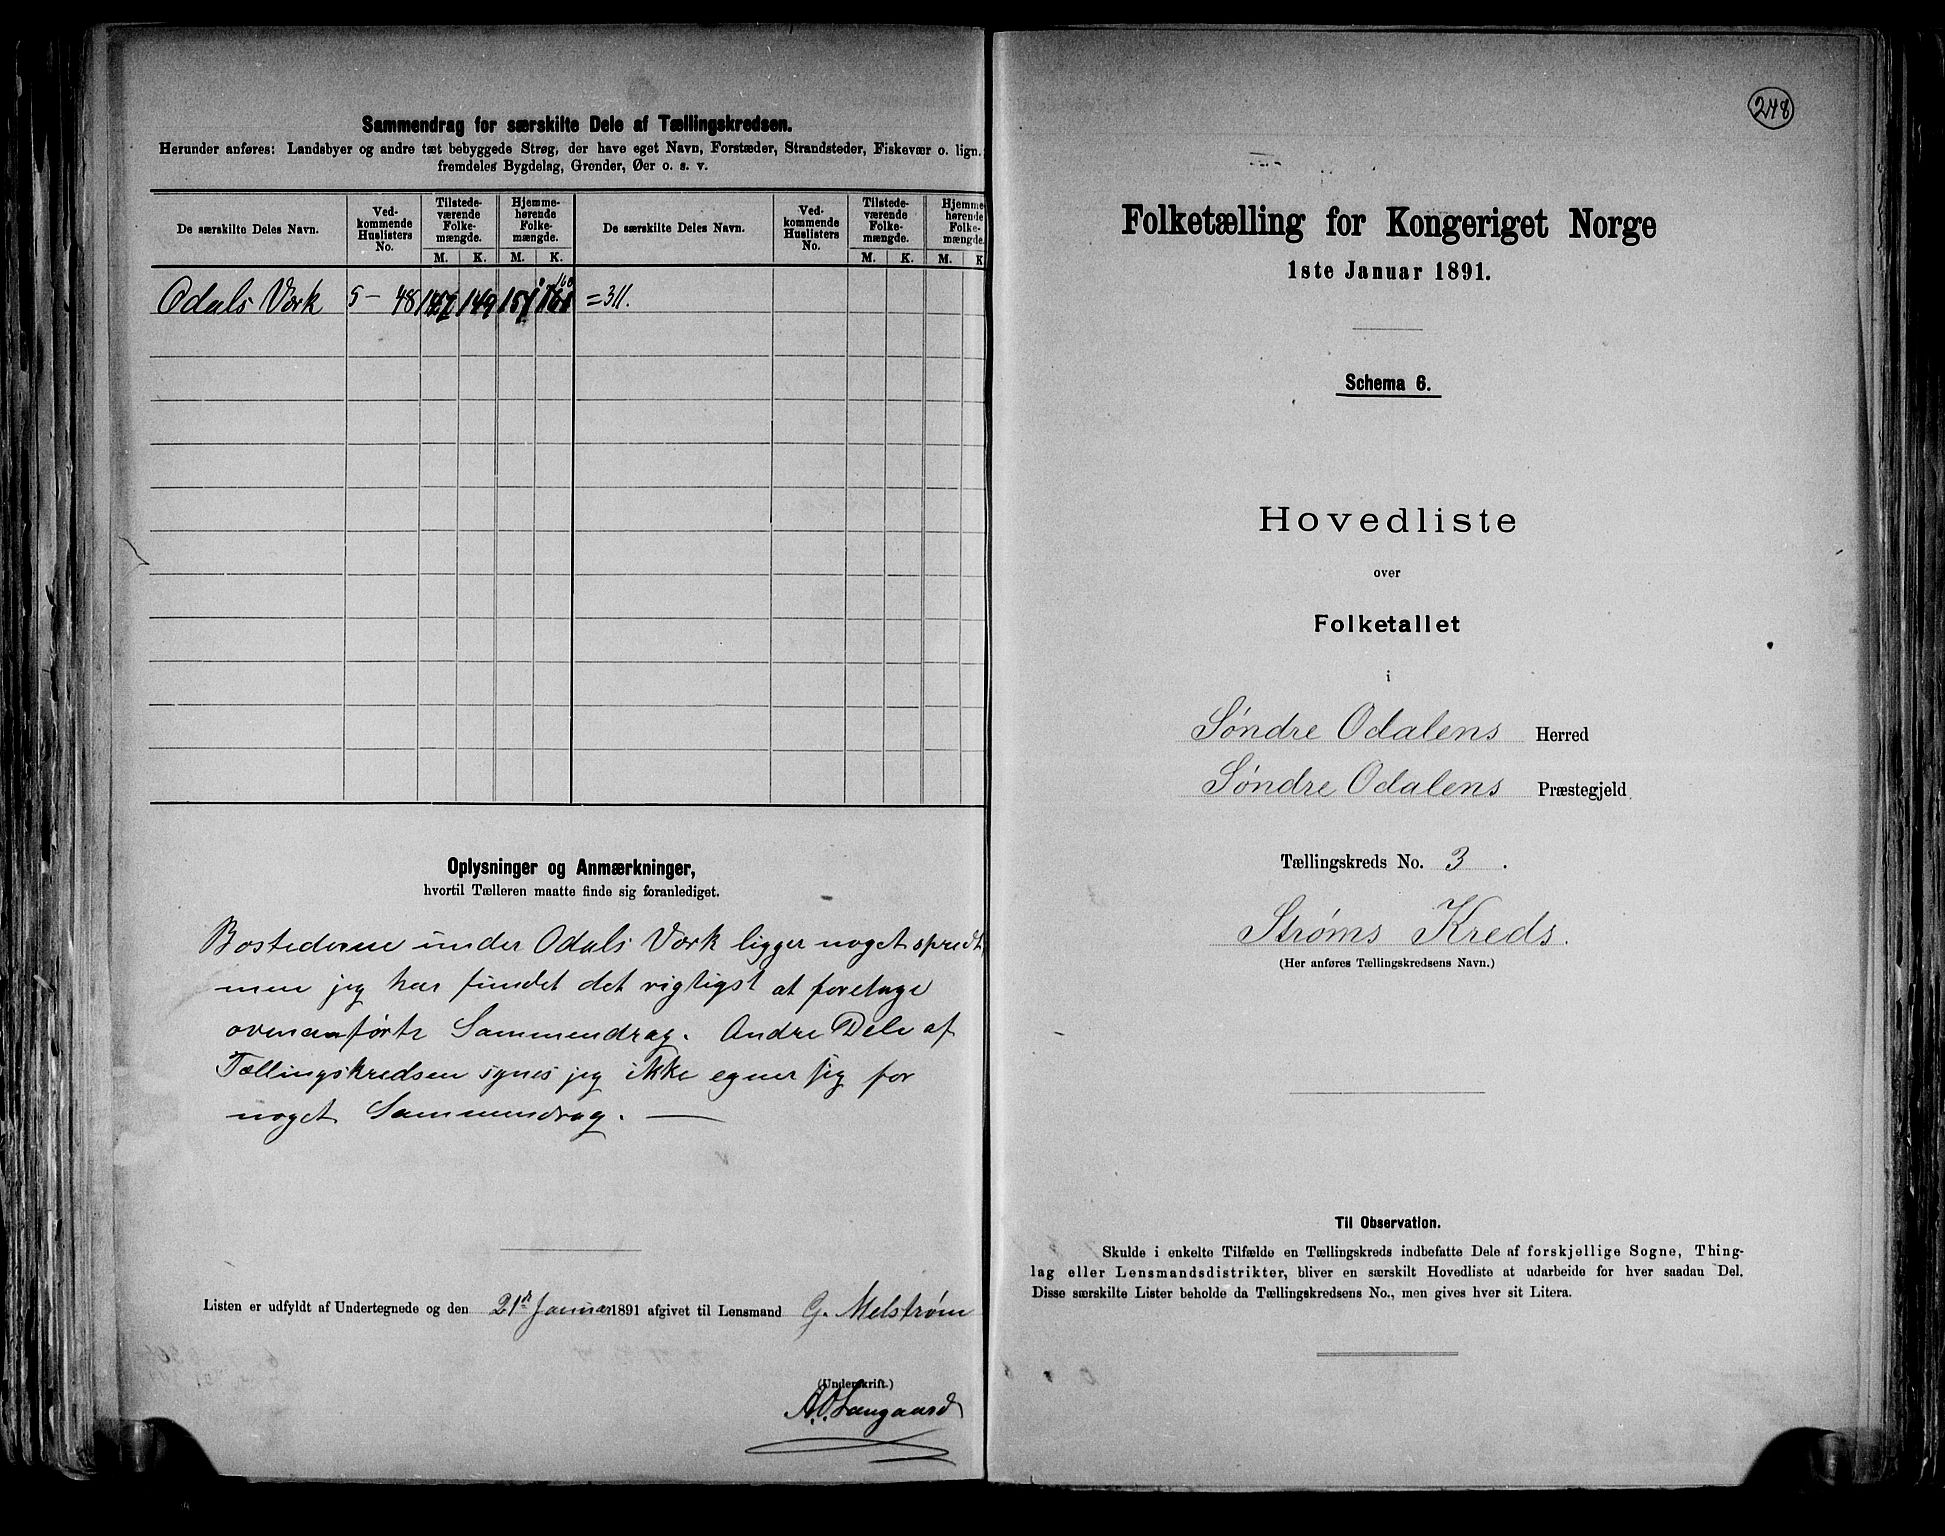 Sammendrag for særskilte Dele af Tællingskredsen.
Herunder anføres: Landsbyer og andre tæt bebyggede Strøg, der have eget Navn, Forstæder, Strandsteder, Fiskevær o. lign.
fremdeles Bygdelag, Grender, Øer o. s. v.
De særskilte Deles Navn.
Ved-
kommende
Huslisters
No.
Tilstede-
værende
Folke-
mængde.
M. K.
Hjemme-
hørende
Folke-
mængde.
M. K.
De særskilte Deles Navn.
Ved-
kommende
Huslisters
No.
Tilstede-
værende
Folke-
mængde.
M. K.
Hjemme-
hørende
Folke-
mængde.
M. K
160
Odals Værk 5 – 48 149 151 161 = 311.
Oplysninger og Anmærkninger,
hvortil Tælleren maatte finde sig foranlediget.
Bostederne under Odals Værk ligger noget spredt,
men jeg har fundet det rigtigst at foretage
ovenanførte Sammendrag. Andre Dele af
Tællingskredsen synes jeg ikke egner sig for
noget Sammendrag. —
Listen er udfyldt af Undertegnede og den 21de Januar 1891 afgivet til Lensmand G. Melstrøm
(Underskrift.)
A.O. Langaard
248
Folketælling for Kongeriget Norge
1ste Januar 1891.
Schema 6.
Hovedliste
over
Folketallet
i
Søndre Odalens Herred
Søndre Odalens Præstegjeld
Tællingskreds No. 3.
Strøms Kreds.
(Her anføres Tællingskredsens Navn.)
Til Observation.
Skulde i enkelte Tilfælde en Tællingskreds indbefatte Dele af forskjellige Sogne, Thing-
lag eller Lensmandsdistrikter, bliver en særskilt Hovedliste at udarbeide for hver saadan Del.
Disse særskilte Lister beholde da Tællingskredsens No., men gives hver sit Litera.